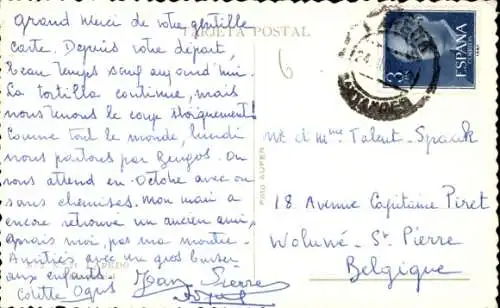 Grand merci de votre gentille
carte. Depuis votre départ,
beau temps sauf aujourd'hui.
La tortilla continue, mais
nous tenons le coup stoïquement!
Comme tout le monde, lundi
nous partons par Burgos. On
nous attend en Octobre avec ou
sans chemises. Mon mari a
encore retrouvé un ancien ami,
mais moi, pas ma montre.
Amitiés avec un gros baiser
aux enfants.
Jean Pierre
Colette
TARJETA POSTAL
6
3
ESPAÑA
CORREOS
Mr et Mme Talent-Spaak
18 Avenue Capitaine Piret
Woluwé - St Pierre
Belgique